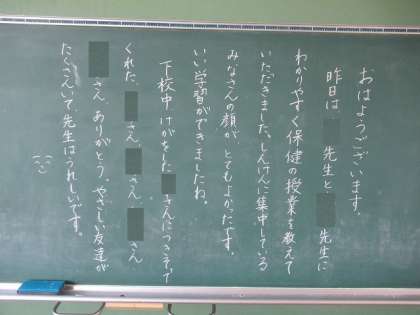 おはようございます。
昨日は 先生と 先生に
わかりやすく保健の授業を教えて
いただきました。しんけんに集中している
みなさんの顔が、とてもよかったです。
いい学習ができましたね。
下校中けがをした さんにつきそって
くれた、 さん さん さん
さん ありがとう。やさしい友達が
たくさんいて、先生はうれしいです。